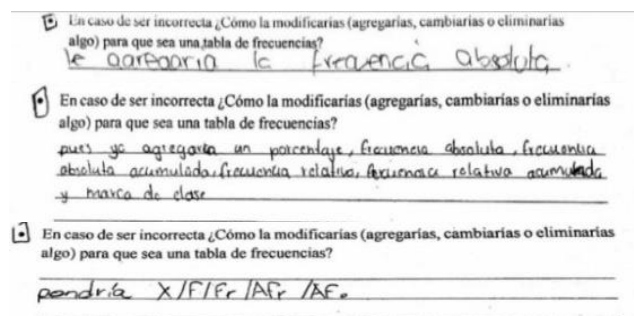 En caso de ser incorrecta ¿Cómo la modificarías (agregarías, cambiarías o eliminarías
algo) para que sea una tabla de frecuencias?
le agregaria la frecuencia absoluta
En caso de ser incorrecta ¿Cómo la modificarías (agregarías, cambiarías o eliminarías
algo) para que sea una tabla de frecuencias?
pues yo agregaria un porcentaje, frecuencia absoluta, frecuencia
absoluta acumulada, frecuencia relativa, frecuencia relativa acumulada
y marca de clase
En caso de ser incorrecta ¿Cómo la modificarías (agregarías, cambiarías o eliminarías
algo) para que sea una tabla de frecuencias?
pondría X/F/Fr/AFr/AF.